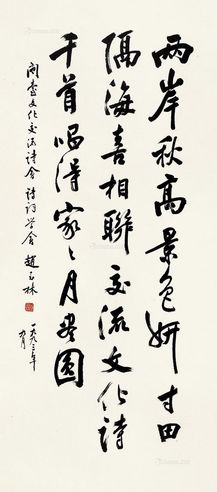 两岸秋高景色妍才田
隔海喜相联交流文化诗
千首唱得家家月盡圆
闽台文化交流诗会 诗词学会 赵玉林
一九九三年
九月